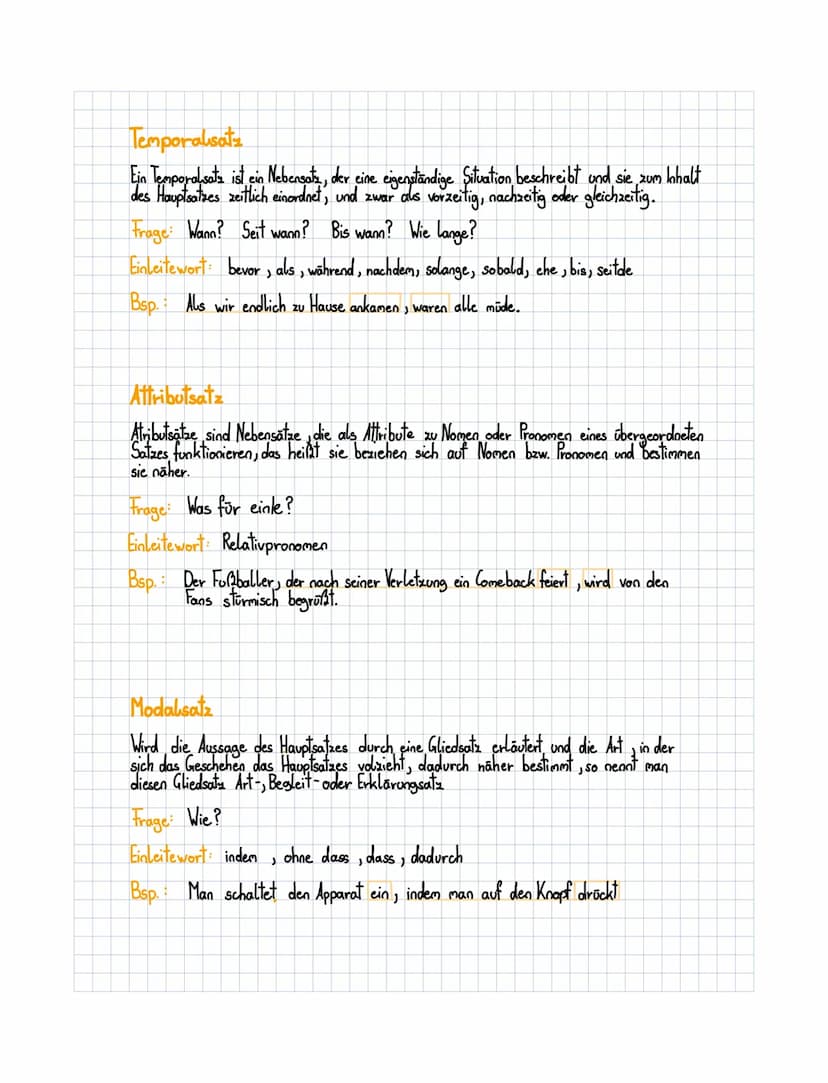 Temporalsatz
Ein Temporalsatz ist ein Nebensatz, der eine eigenständige Situation beschreibt und sie zum Inhalt
des Hauptsatzes zeitlich einordnet, und zwar als vorzeitig, nachzeitig oder gleichzeitig.
Frage: Wann? Seit wann? Bis wann? Wie lange?
Einleitewort: bevor, als, während, nachdem, solange, sobald, ehe, bis, seitde
Bsp.: Als wir endlich zu Hause ankamen, waren alle müde.
Attributsatz
Atributsätze sind Nebensätze, die als Attribute zu Nomen oder Pronomen eines übergeordneten
Satzes funktionieren, das heißt sie beziehen sich auf Nomen bzw. Pronomen und bestimmen
sie näher.
Frage: Was für einle?
Einleitewort: Relativpronomen
Bsp.: Der Fußballer, der nach seiner Verletzung ein Comeback feiert, wird von den
Fans stürmisch begrüßt.
Modalsatz
Wird die Aussage des Hauptsatzes durch eine Gliedsatz erläutert und die Art, in der
sich das Geschehen das Hauptsatzes volzieht, dadurch näher bestimmt, so nennt man
diesen Gliedsatz Art-, Begleit- oder Erklärungsatz
Frage: Wie?
Einleitewort: indem, ohne dass, dass, dadurch
Bsp.: Man schaltet den Apparat ein, indem man auf den Knopf drückt